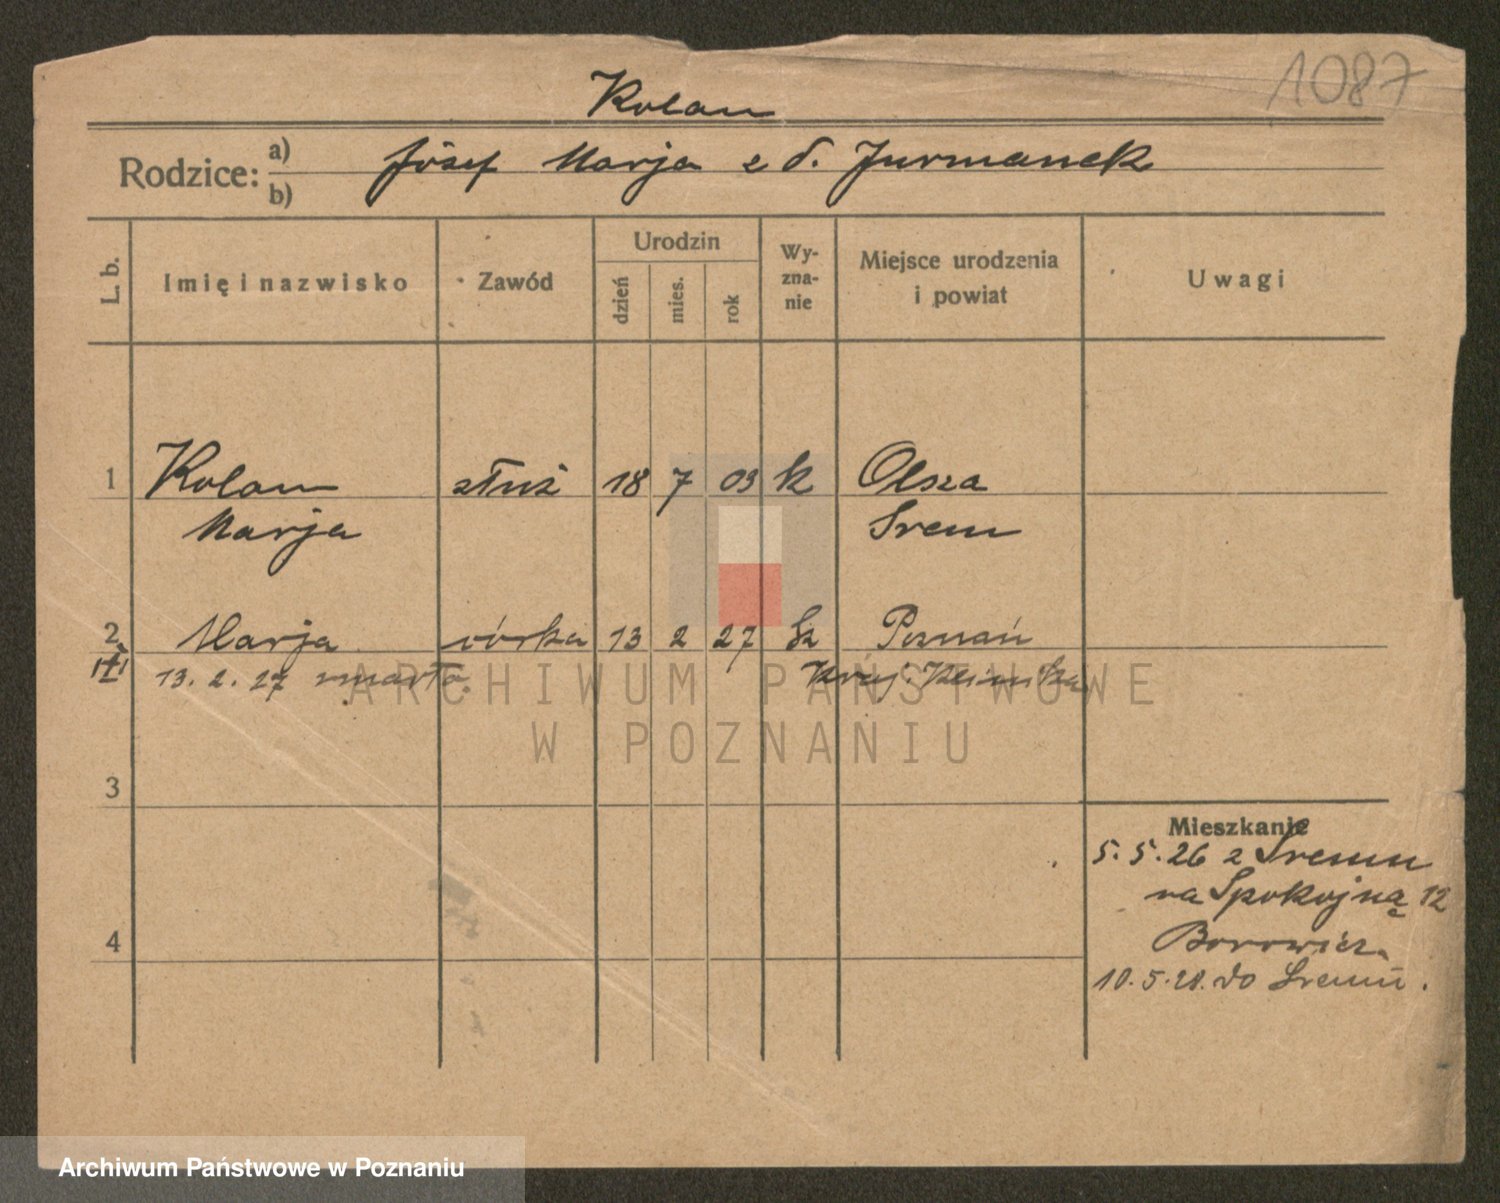 1087
Kolan
Rodzice: a) b) Józef Marja z d. Jurmanek
L. b.
Imię i nazwisko
Zawód
Urodzin
dzień
mies.
rok
Wy-
zna-
nie
Miejsce urodzenia
i powiat
Uwagi
1 Kolan służ 18 7 03 k Olsza
Marja Śrem
2 Marja córka 13 2 27 k Poznań
13. 2. 27 zmarła
3
Mieszkanie
5. 5. 26 z Śremu
na Spokojną 12
4 Borowicz.
10. 5. 28. do Śremu.
ARCHIWUM PAŃSTWOWE
W POZNANIU
Archiwum Państwowe w Poznaniu